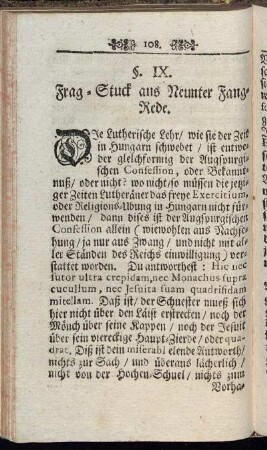 108.
§. IX.
Frag-Stuck aus Neunter Fang-
Rede.
DIe Lutherische Lehr/ wie sie der Zeit
in Hungarn schwebet / ist entwe-
der gleichförmig der Augspurgi-
schen Confession, oder Bekannt-
nuß/ oder nicht? wo nicht/ so müssen die jetzi-
ger Zeiten Lutheraner das freye Exercitium,
oder Religions-Ubung in Hungarn nicht für-
wenden / dann dises ist der Augspurgischen
Confession allein ( wiewohlen aus Nachse-
hung/ ja nur aus Zwang / und nicht mit al-
ler Ständen des Reichs einwilligung) ver-
stattet worden. Du antworthest: Hic nec
sutor ultra crepidam, nec Monachus supra
cucullum, nec Jesuita suam quadrifidam
mitellam. Daß ist/ der Schuester mueß sich
hier nicht über den Läist erstrecken/ noch der
Mönch über seine Kappen/ noch der Jesuit
über sein viereckige Haupt-Zierde/ oder qua-
drat. Diß ist dem miserabl elende Antworth/
nichts zur Sach/ und überaus lächerlich/
nicht von der Hochen-Schuel/ nichts zum
Vorha-